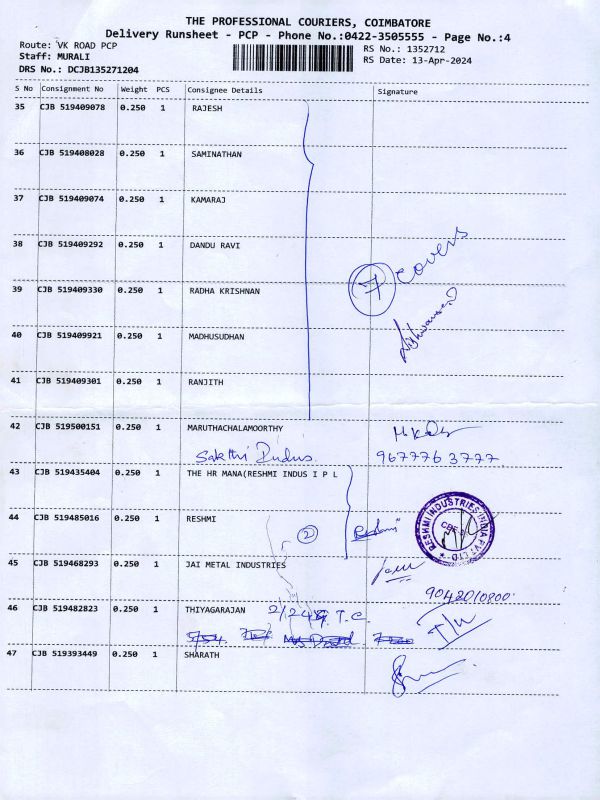 THE PROFESSIONAL COURIERS, COIMBATORE
Delivery Runsheet - PCP - Phone No.:0422-3505555 - Page No.:4
Route: VK ROAD PCP
RS No.: 1352712
Staff: MURALI
RS Date: 13-Apr-2024
DRS No.: DCJB135271204
S No Consignment No Weight PCS Consignee Details Signature
35 CJB 519409078 0.250 1 RAJESH
36 CJB 519408028 0.250 1 SAMINATHAN
37 CJB 519409074 0.250 1 KAMARAJ
38 CJB 519409292 0.250 1 DANDU RAVI
7 covers
39 CJB 519409330 0.250 1 RADHA KRISHNAN
40 CJB 519409921 0.250 1 MADHUSUDHAN
41 CJB 519409301 0.250 1 RANJITH
42 CJB 519500151 0.250 1 MARUTHACHALAMOORTHY
Sakthi Indus. 9677763777
43 CJB 519435404 0.250 1 THE HR MANA(RESHMI INDUS I P L
44 CJB 519485016 0.250 1 RESHMI
2
RESHMI INDUSTRIES INDIA PVT
45 CJB 519468293 0.250 1 JAI METAL INDUSTRIES
9042010800
46 CJB 519482823 0.250 1 THIYAGARAJAN
47 CJB 519393449 0.250 1 SHARATH